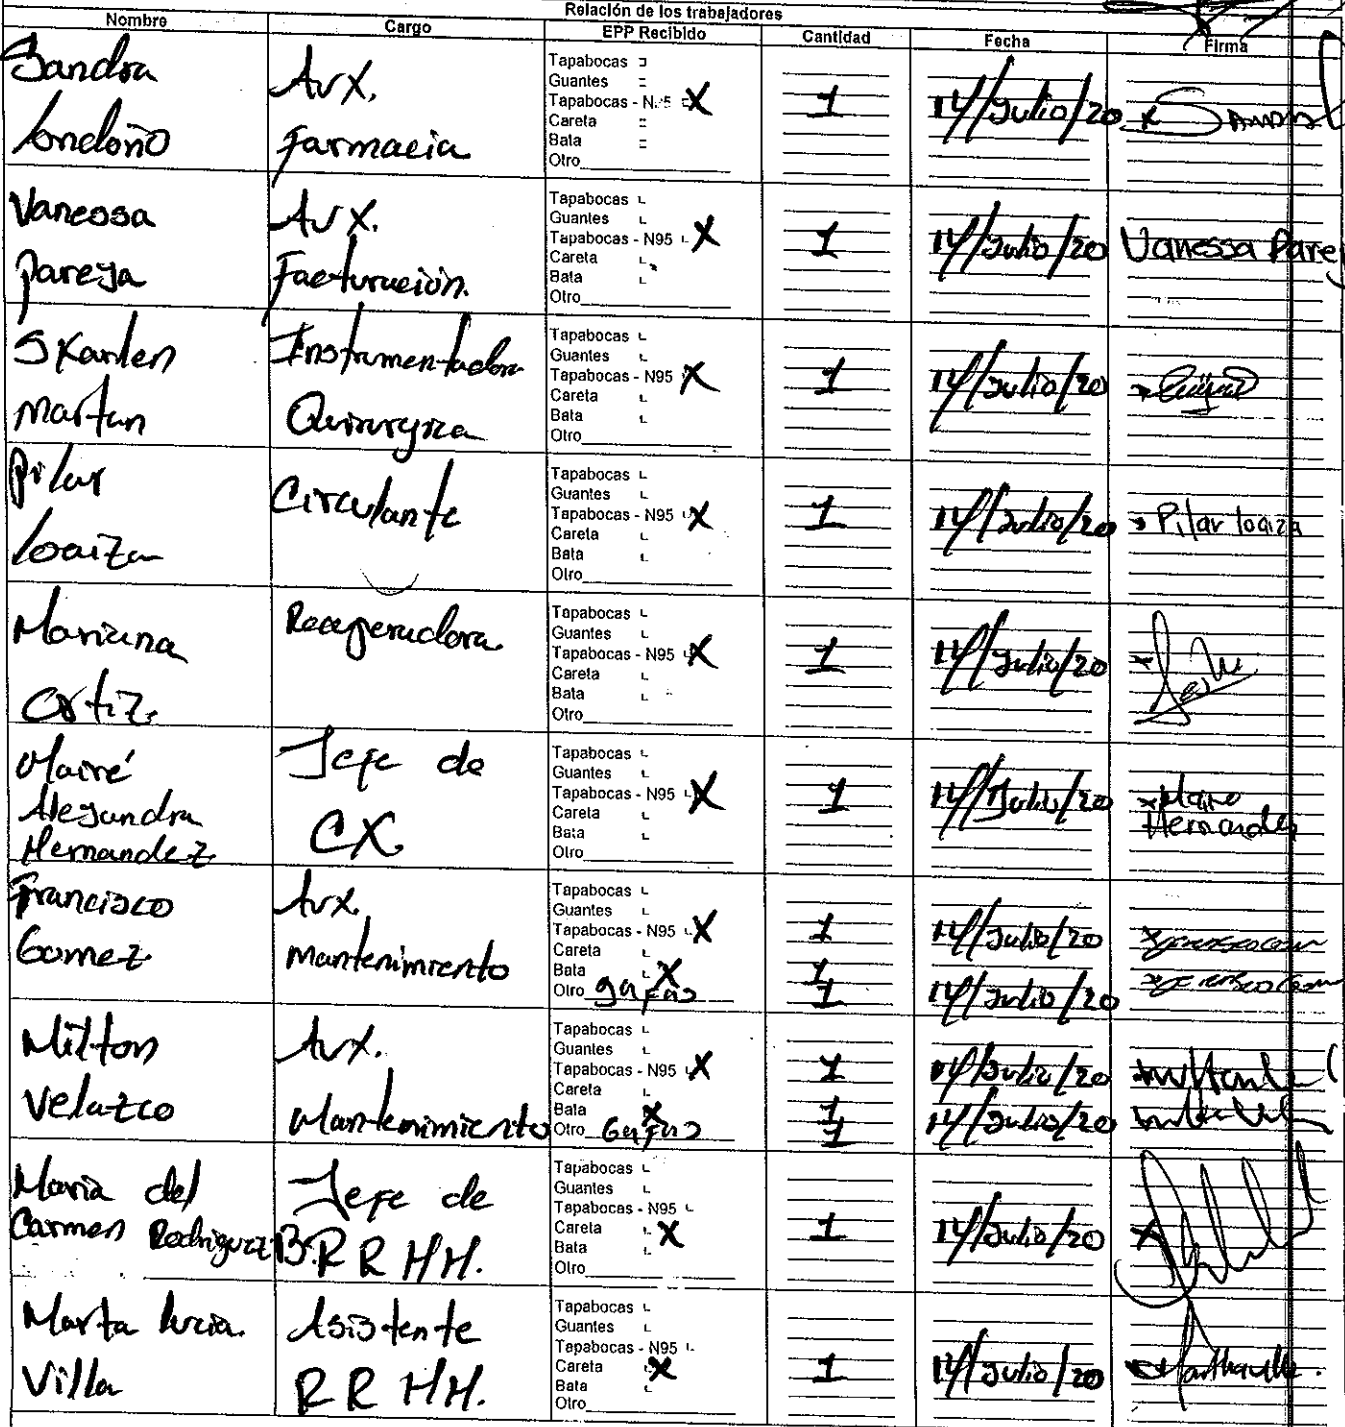 Relación de los trabajadores
Nombre Cargo EPP Recibido Cantidad Fecha Firma
Sandra Londoño
Aux. Farmacia
Tapabocas
Guantes
Tapabocas - N95 X
Careta
Bata
Otro
1
14/Julio/20
x Sandra
Vanessa
Pareja
Aux.
Facturación.
Tapabocas
Guantes
Tapabocas - N95 X
Careta
Bata
Otro
1
14/Julio/20
Vanessa Pare
Skarlen
Martun
Instrumentadora
Quirurgica
Tapabocas
Guantes
Tapabocas - N95 X
Careta
Bata
Otro
1
14/Julio/20
Pilar
Loaiza
Circulante
Tapabocas
Guantes
Tapabocas - N95 X
Careta
Bata
Otro
1
14/Julio/20
x Pilar loaiza
Mariana
Ortiz
Recuperadora
Tapabocas
Guantes
Tapabocas - N95 X
Careta
Bata
Otro
1
14/Julio/20
Mairé
Alejandra
Hernandez
Jefe de
CX
Tapabocas
Guantes
Tapabocas - N95 X
Careta
Bata
Otro
1
14/Julio/20
x Maire
Hernandez
Francisco
Gomez
Aux.
Mantenimiento
Tapabocas
Guantes
Tapabocas - N95 X
Careta
Bata X
Otro gafas
1
1
1
14/Julio/20
14/Julio/20
Milton
Velazco
Aux.
Mantenimiento
Tapabocas
Guantes
Tapabocas - N95 X
Careta
Bata X
Otro Gafas
1
1
1
14/Julio/20
14/Julio/20
Maria del
Carmen Rodriguez B.
Jefe de
RRHH.
Tapabocas
Guantes
Tapabocas - N95
Careta X
Bata
Otro
1
14/Julio/20
Marta lucia.
Villa
Asistente
RRHH.
Tapabocas
Guantes
Tapabocas - N95
Careta X
Bata
Otro
1
14/Julio/20